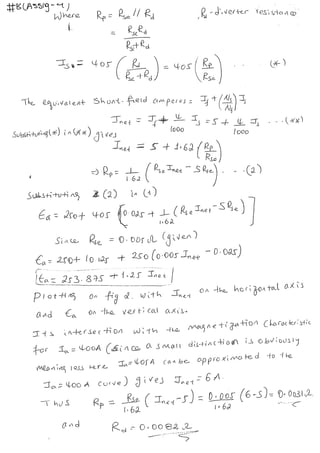 #8(Assig-4)
where Rp = Rse // Rd , Rd - diverter resistance
= RseRd / Rse+Rd
Is = 405 (Rd / Rse+Rd) = 405 (Rp / Rse) (*)
The equivalent Shunt-field amperes = If + (Ns/Nf) Is
Inet = If + 4/1000 Is = 5 + 4/1000 Is ... (**)
Substituting (*) in (**) gives
Inet = 5 + 1.62 (Rp/Rse)
=> Rp = 1/1.62 (Rse Inet - 5Rse) ... (2)
Substituting (2) in (1)
Ea = 250 + 405 [0.025 + 1/1.62 (Rse Inet - 5Rse)]
Since Rse = 0.005Ω (given)
Ea = 250 + 10.125 + 250 (0.005 Inet - 0.025)
Ea = 253.875 + 1.25 Inet
Plotting on fig 2. with Inet on the horizontal axis
and Ea on the vertical axis.
Its intersection with the magnetization characteristic
for Ia = 400A (since a small distinction is obviously
meaningless here Ia = 405A can be approximated to the
Ia = 400 A curve) gives Inet = 6A
Thus Rp = Rse/1.62 (Inet - 5) = 0.005/1.62 (6-5) = 0.0031Ω
and Rd = 0.0082Ω